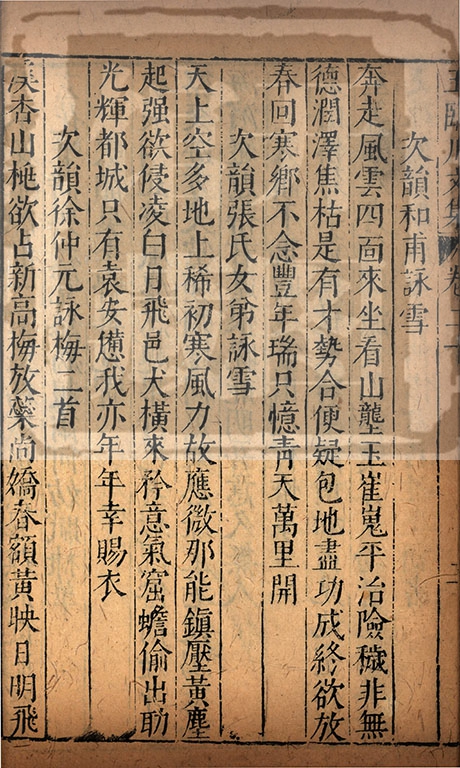 王臨川文集 卷二十
次韻和甫詠雪
奔走風雲四面來坐看山壟玉崔嵬平治險穢非無
德潤澤焦枯是有才勢合便疑包地盡功成終欲放
春回寒鄉不念豐年瑞只憶青天萬里開
次韻張氏女弟詠雪
天上空多地上稀初寒風力故應微那能鎮壓黃塵
起强欲侵凌白日飛邑犬橫來矜意氣窟蟾偷出助
光輝都城只有袁安憊我亦年年幸賜衣
次韻徐仲元詠梅二首
溪杏山桃欲占新高梅放蘂尚嬌春額黃映日明飛